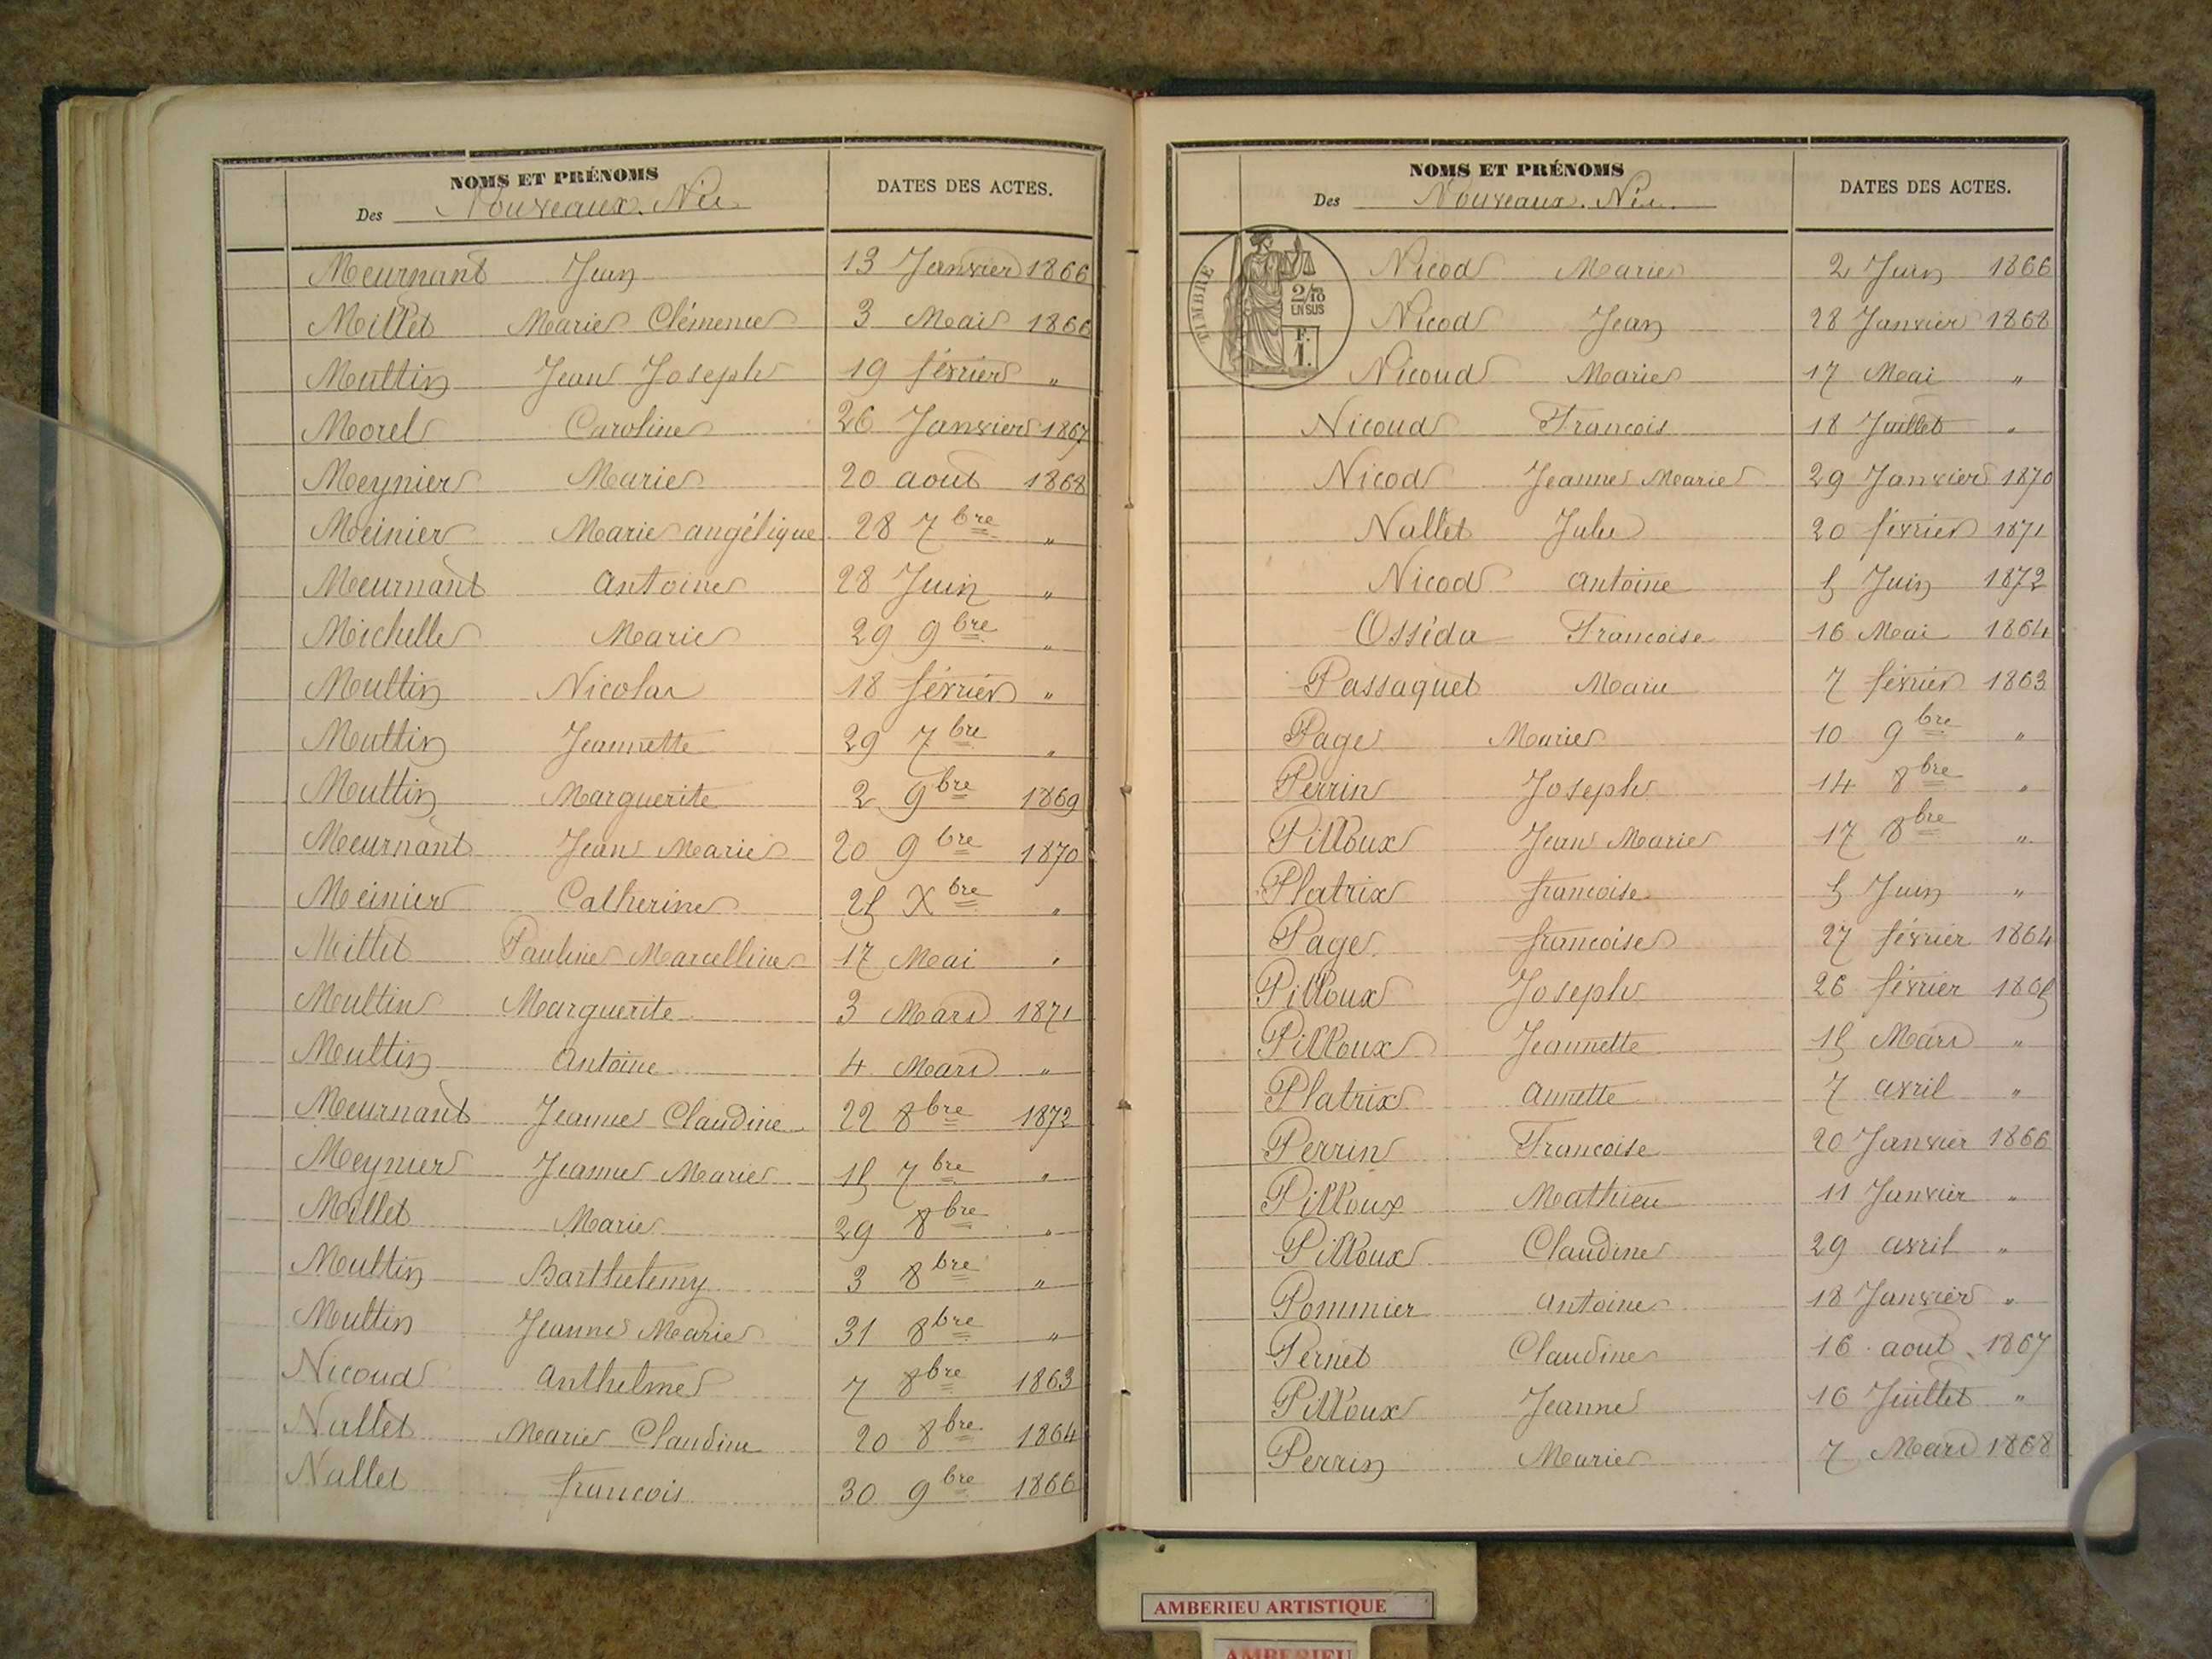 NOMS ET PRÉNOMS
Des Nouveaux. Nés.
DATES DES ACTES.
Meurnant Jean 13 Janvier 1866
Millet Marie Clémence 3 Mai 1866
Muttin Jean Joseph 19 février "
Morel Caroline 26 Janvier 1867
Meynier Marie 20 aout 1868
Meinier Marie angélique 28 7bre "
Meurnant antoine 28 Juin "
Michelle Marie 29 9bre "
Muttin Nicolas 18 février "
Muttin Jeannette 29 7bre "
Muttin Marguerite 2 9bre 1869
Meurnant Jean Marie 20 9bre 1870
Meinier Catherine 25 Xbre "
Millet Pauline Marcelline 17 Mai "
Muttin Marguerite 3 Mars 1871
Muttin Antoine 4 Mars "
Meurnant Jeanne Claudine 22 8bre 1872
Meynier Jeanne Marie 15 7bre "
Millet Marie 29 8bre "
Muttin Barthelemy 3 8bre "
Muttin Jeanne Marie 31 8bre "
Nicoud Anthelme 7 8bre 1863
Nallet Marie Claudine 20 8bre 1864
Nallet francois 30 9bre 1866
NOMS ET PRÉNOMS
Des Nouveaux. Nés.
DATES DES ACTES.
TIMBRE
2/10
EN SUS
F.
1.
Nicod Marie 2 Juin 1866
Nicod Jean 28 Janvier 1868
Nicoud Marie 17 Mai "
Nicoud Francois 18 Juillet "
Nicod Jeanne Marie 29 Janvier 1870
Nallet Julie 20 février 1871
Nicod antoine 5 Juin 1872
Osséda Francoise 16 Mai 1864
Passaquet Marie 7 février 1863
Page Marie 10 9bre "
Perrin Joseph 14 8bre "
Pilloux Jean Marie 17 8bre "
Platrix francoise 5 Juin "
Page francoise 27 février 1864
Pilloux Joseph 26 février 1865
Pilloux Jeannette 15 Mars "
Platrix annette 7 avril "
Perrin Francoise 20 Janvier 1866
Pilloux Mathieu 11 Janvier "
Pilloux Claudine 29 avril "
Pommier antoine 18 Janvier "
Pernet Claudine 16 aout 1867
Pilloux Jeanne 16 Juillet "
Perrin Marie 7 Mars 1868
AMBERIEU ARTISTIQUE
AMBERIEU